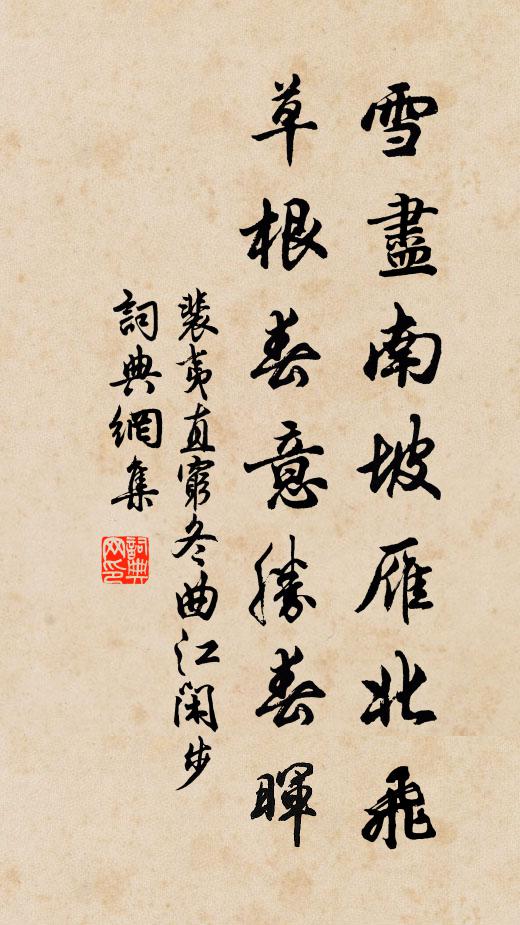 雪盡南坡雁北飛
草根春意勝春暉
裴夷直窮冬曲江閑步
詞典網集
詞典網印